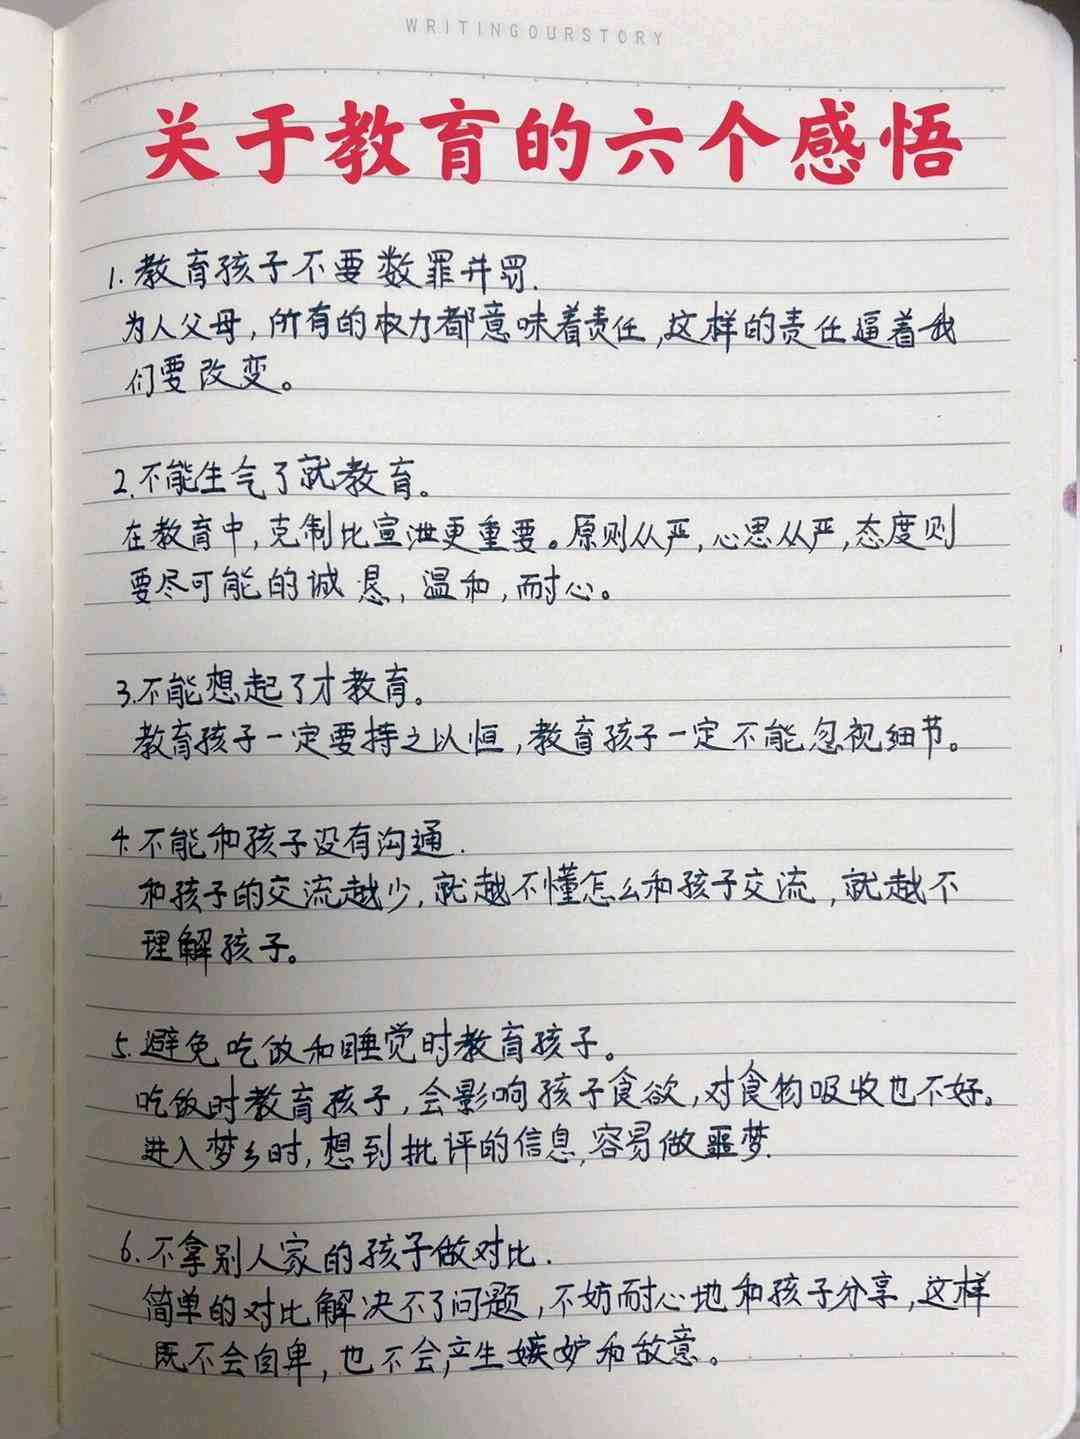 WRITINGOURSTORY
关于教育的六个感悟
1.教育孩子不要数罪并罚.
为人父母,所有的权力都意味着责任,这样的责任逼着我
们要改变。
2.不能生气了就教育。
在教育中,克制比宣泄更重要。原则从严,心思从严,态度则
要尽可能的诚恳,温和,耐心。
3.不能想起了才教育。
教育孩子一定要持之以恒,教育孩子一定不能忽视细节。
4.不能和孩子没有沟通.
和孩子的交流越少,就越不懂怎么和孩子交流,就越不
理解孩子。
5.避免吃饭和睡觉时教育孩子。
吃饭时教育孩子,会影响孩子食欲,对食物吸收也不好。
进入梦乡时,想到批评的信息,容易做噩梦.
6.不拿别人家的孩子做对比.
简单的对比解决不了问题,不妨耐心地和孩子分享,这样
既不会自卑,也不会产生嫉妒和故意。